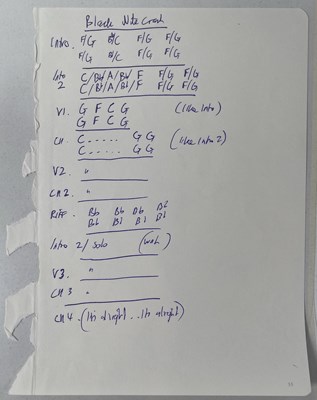 Black Nite Crash
Intro. F/G B/C F/G F/G
F/G B/C F/G F/G
Into 2 C/Bb/A/Bb/F F/G F/G
C/Bb/A/Bb/F F/G F/G
V1. G F C G (like intro)
G F C G
CH. C...... G G (like intro 2)
C...... G G
V2. "
CH2. "
RIFF. Bb Bb Db Db
Bb Bb Db Db
Intro 2/Solo (wah)
V3. "
CH3 "
CH4. (its alright...its alright)